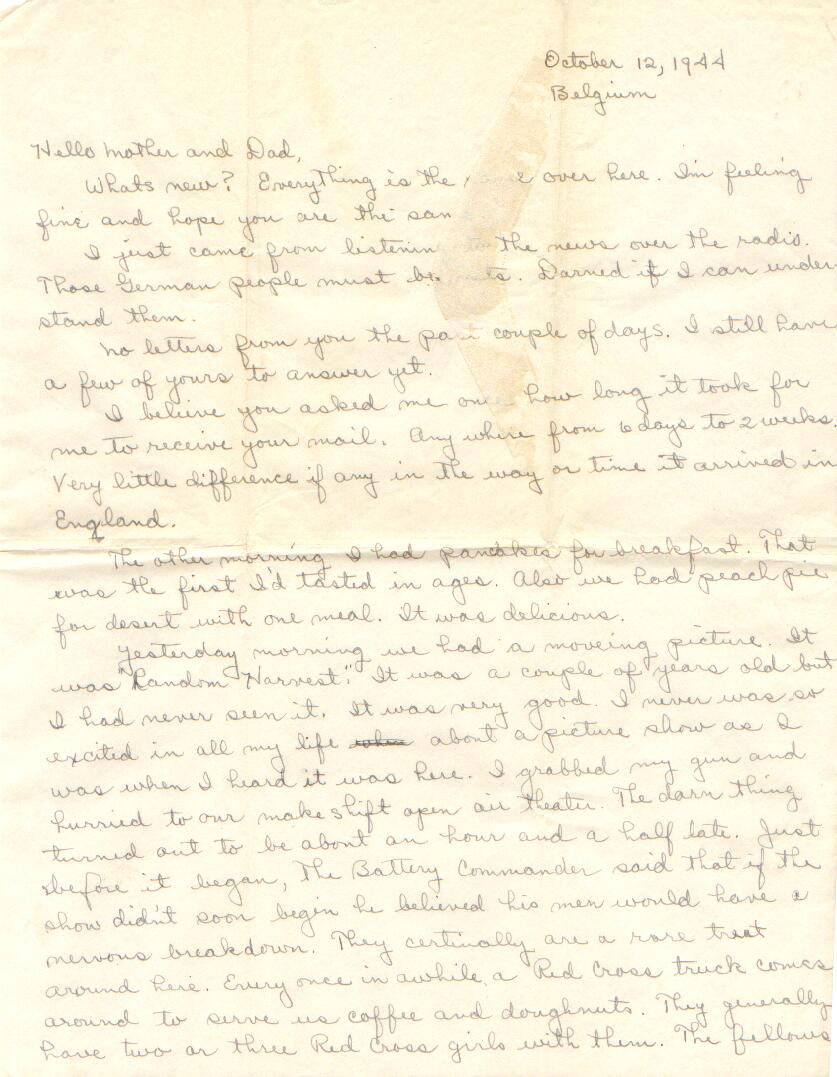 October 12, 1944
Belgium
Hello Mother and Dad,
Whats new? Everything is the same over here. Im feeling
fine and hope you are the sam
I just came from listenin to the news over the radio.
Those German people must be nuts. Darned if I can under
stand them.
No letters from you the past couple of days. I still have
a few of yours to answer yet.
I believe you asked me once how long it took for
me to receive your mail. Any where from 6 days to 2 weeks.
Very little difference if any in the way or time it arrived in
England.
The other morning I had pancakes for breakfast. That
was the first I'd tasted in ages. Also we had peach pie
for desert with one meal. It was delicious.
Yesterday morning we had a moveing picture. It
was "Random Harvest." It was a couple of years old but
I had never seen it. It was very good. I never was so
excited in all my life about a picture show as I
was when I heard it was here. I grabbed my gun and
hurried to our makeshift open air theater. The darn thing
turned out to be about an hour and a half late. Just
before it began, the Battery Commander said that if the
show didn't soon begin he believed his men would have a
nervous breakdown. They certinally are a rare treat
around here. Every once in awhile a Red Cross truck comes
around to serve us coffee and doughnuts. They generally
have two or three Red Cross girls with them. The fellows